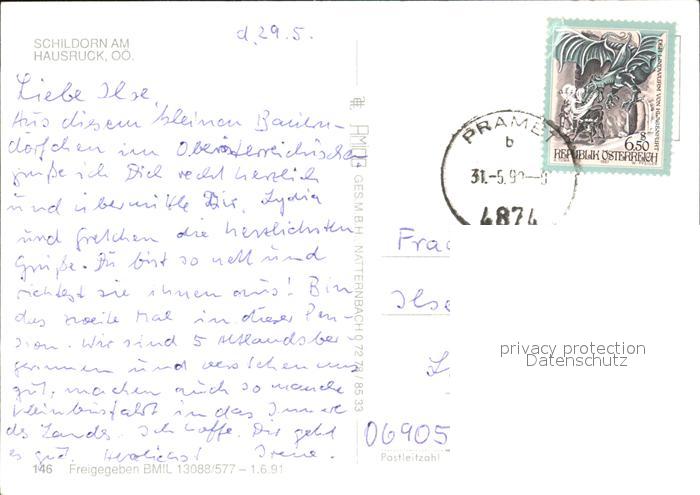 d. 29.5.
SCHILDORN AM
HAUSRUCK, OÖ.
Liebe Ilse,
Aus diesem kleinen Bauern-
dörfchen im Oberösterreichischen
grüße ich Dich recht herzlich
und übermittle Dir, Lydia
und Gretchen die herzlichsten
Grüße. Du bist so nett und
richtest sie ihnen aus! Bin
das zweite Mal in dieser Pen-
sion. Wir sind 5
und verstehen uns
gut, machen auch so manche
Kleinbusfahrt in das Innere
des Landes. Ich hoffe, Dir geht
es gut. Herzlichst Irene.
146 Freigegeben BMIL 13088/577 – 1.6.91
GES.M.B.H. NATTERNBACH 0 72 78 / 85 33
DER LINDWURM VON KLAGENFURT
S
6.50
REPUBLIK ÖSTERREICH
PRAMET
b
31.-5.9
4874
Frau
Ilse
06905
Postleitzahl
privacy protection
Datenschutz